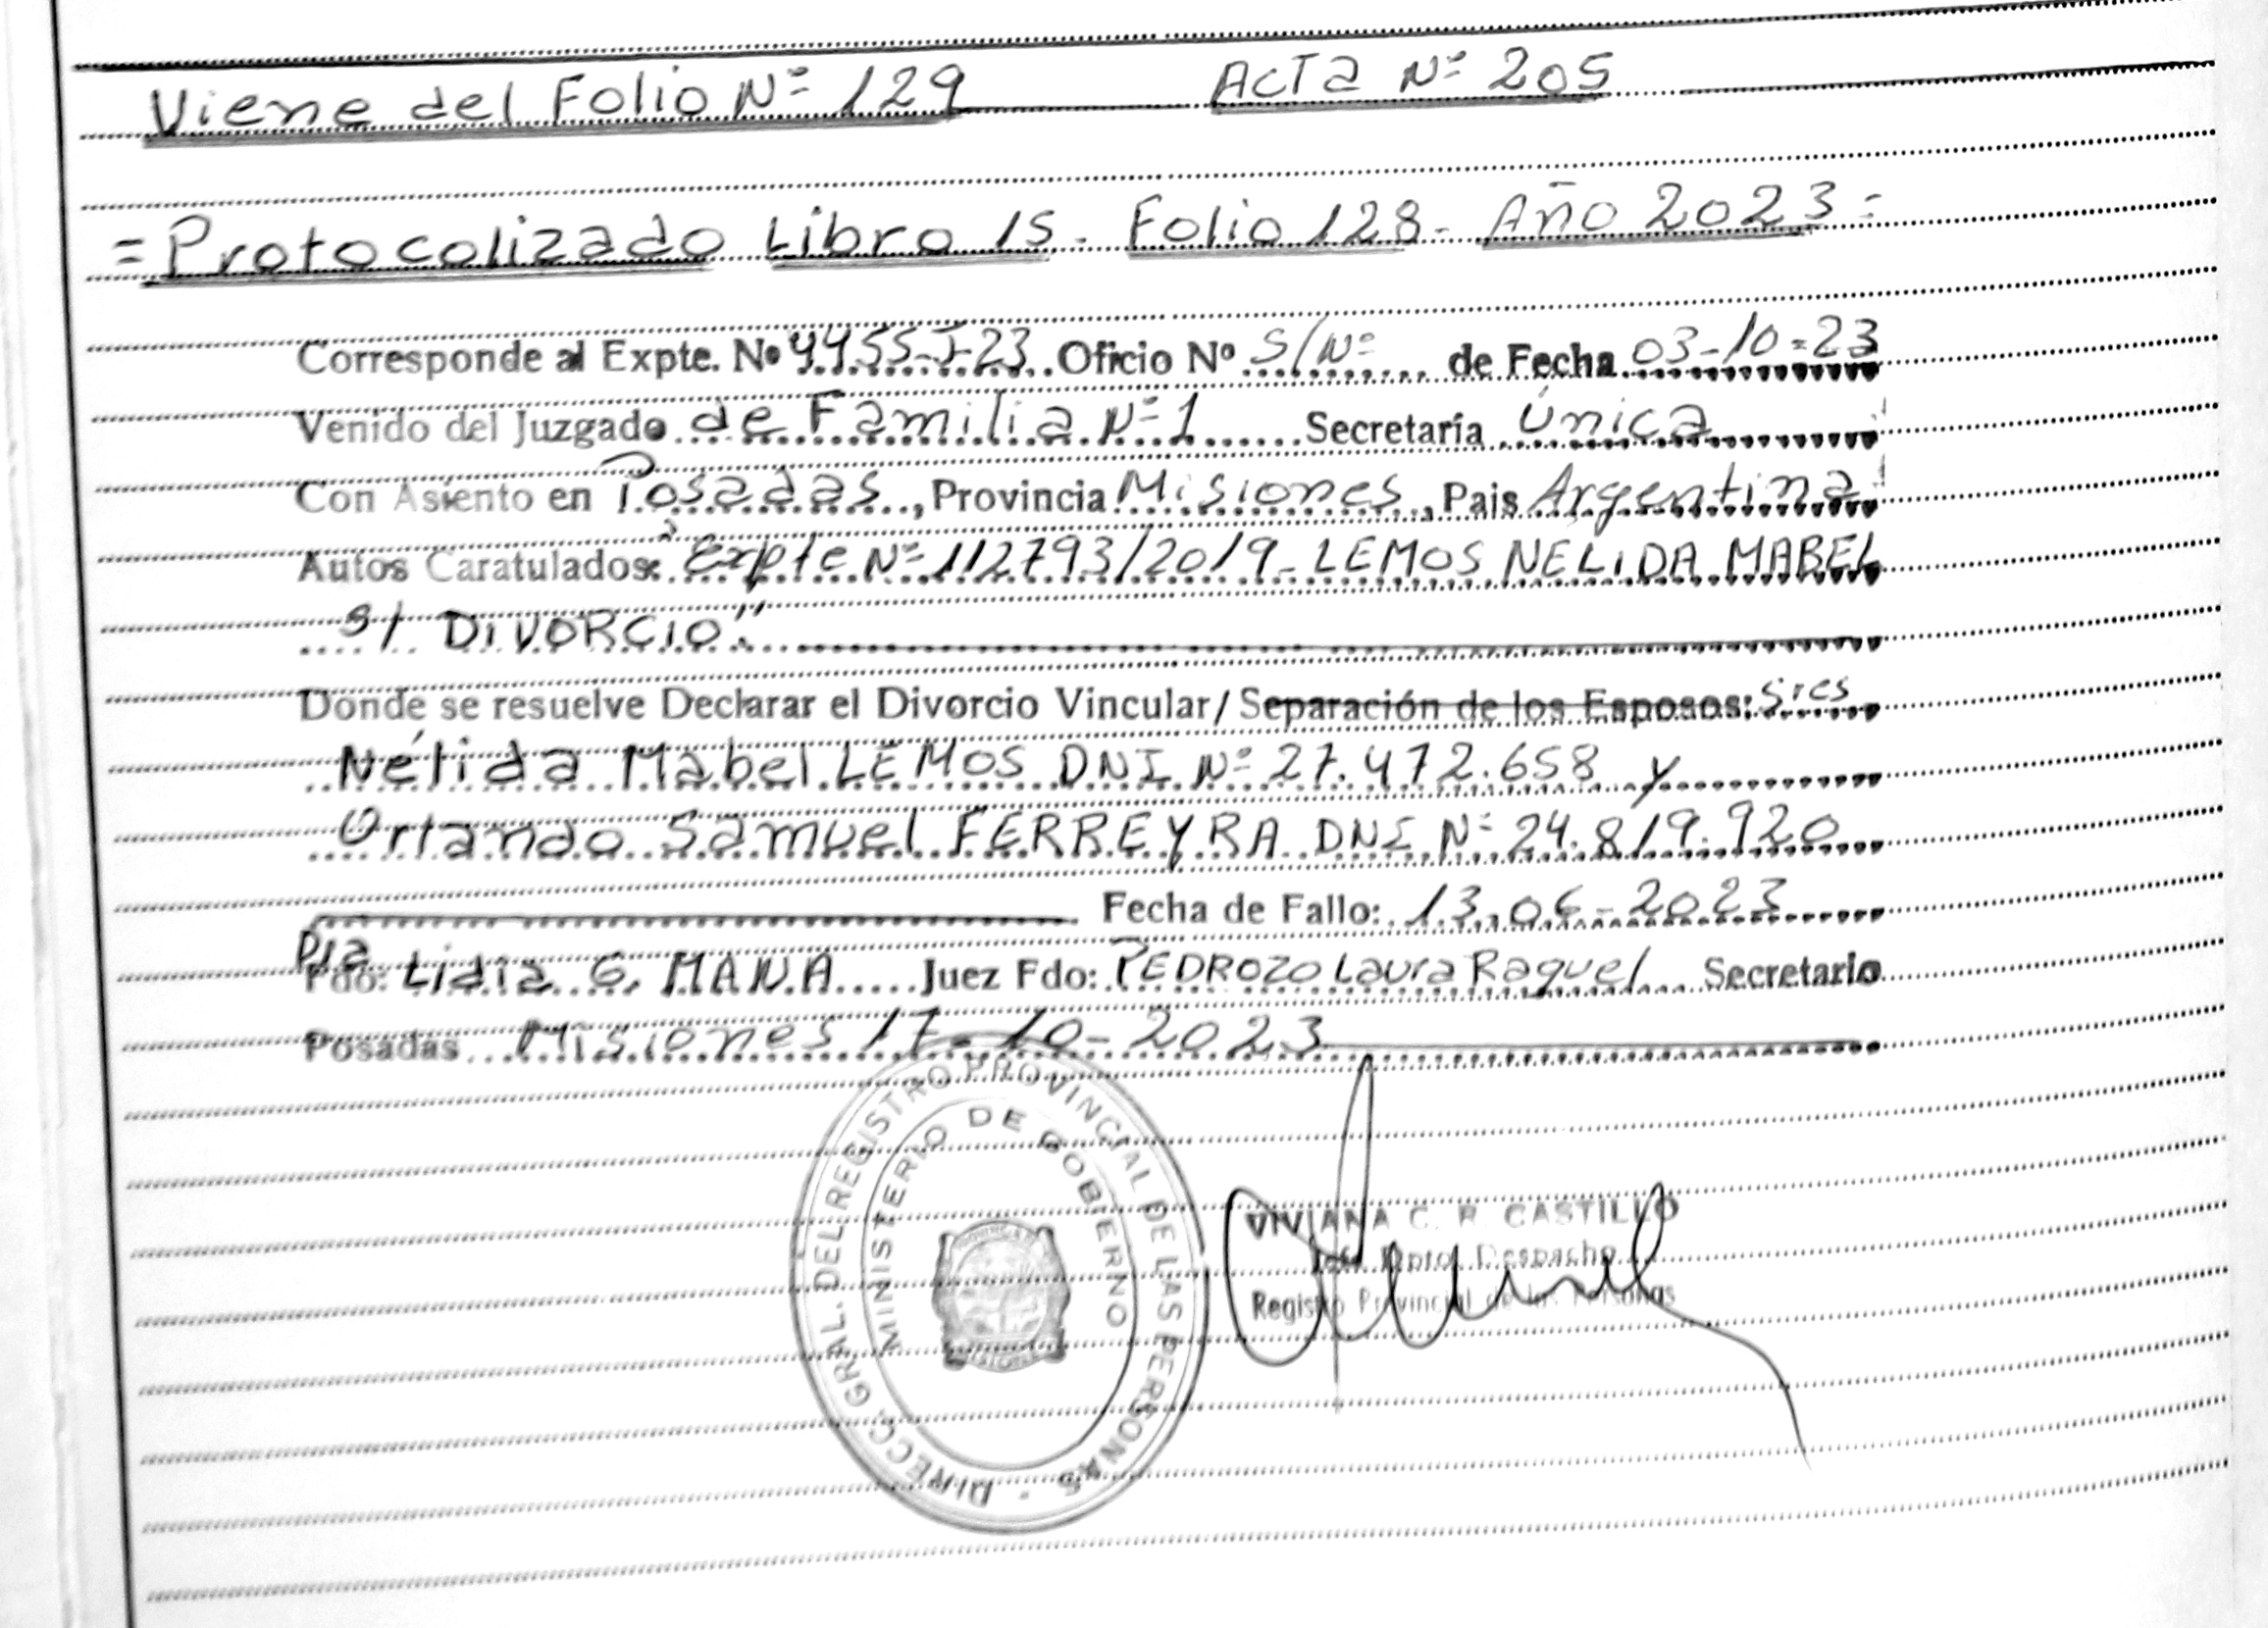 Viene del Folio Nº 129 ACTA Nº 205
= Protocolizado Libro 15 - Folio 128 - Año 2023 =
Corresponde al Expte. Nº 4455-J-23 Oficio Nº S/Nº de Fecha 03-10-23
Venido del Juzgado de Familia Nº 1 Secretaría Única
Con Asiento en Posadas, Provincia Misiones, Pais Argentina
Autos Caratulados: "Expte Nº 112793/2019 - LEMOS NELIDA MABEL
S/ DIVORCIO"
Donde se resuelve Declarar el Divorcio Vincular/ Separación de los Esposos: Sres
Nélida Mabel LEMOS DNI Nº 27.472.658 y
Orlando Samuel FERREYRA DNI Nº 24.819.920
Fecha de Fallo: 13-06-2023
Dra
Fdo: Lidia G. MANA Juez Fdo: PEDROZO Laura Raquel Secretario
Posadas Misiones 17-10-2023
DIRECC. GRAL. DEL REGISTRO PROVINCIAL DE LAS PERSONAS
MINISTERIO DE GOBIERNO
VIVIANA C. R. CASTILLO
Jefe Dpto. Despacho
Registro Provincial de las Personas